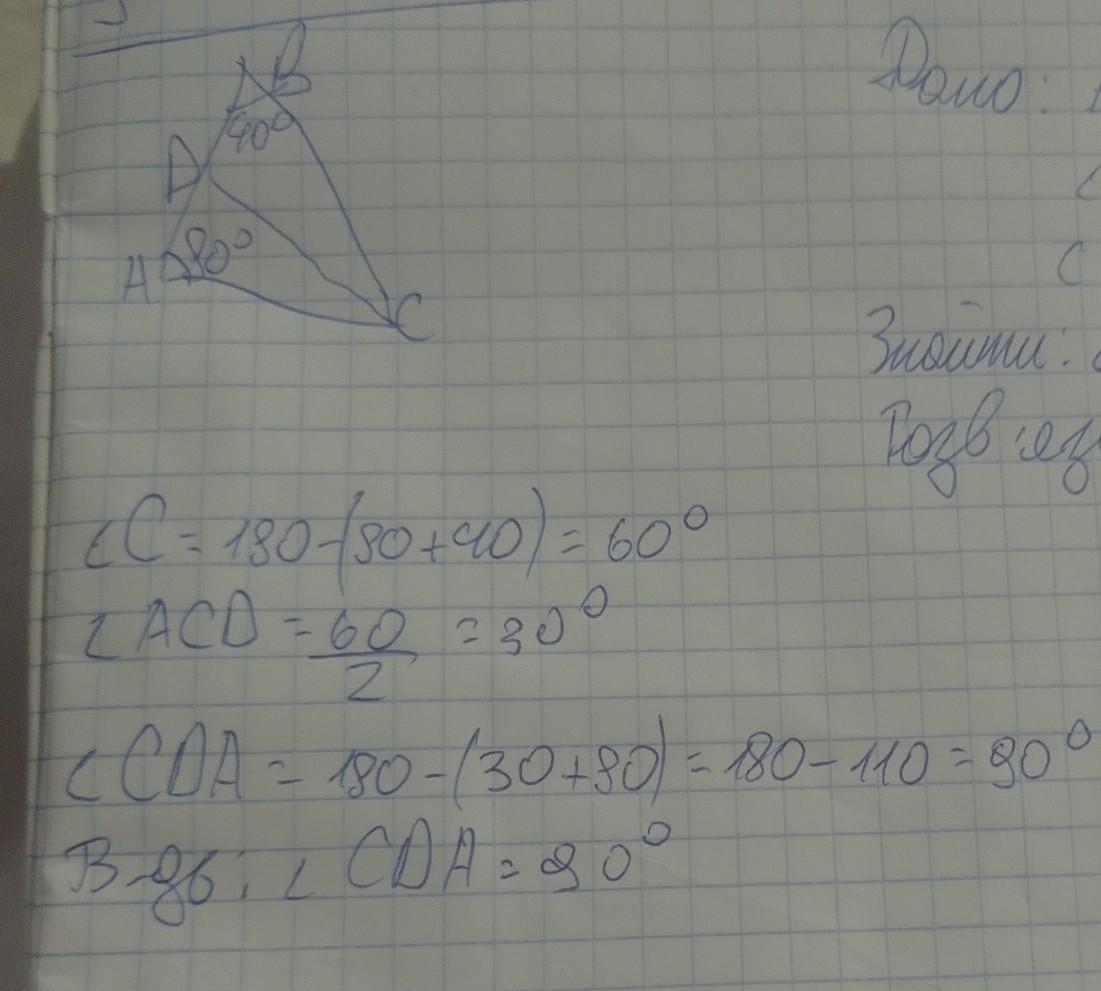 B
40°
D
A 80°
C
Дано:
Знайти:
Розв'яз
∠C = 180-(80+40) = 60°
∠ACD = 60/2 = 30°
∠CDA = 180-(30+80) = 180-110 = 90°
В-дь: ∠CDA = 90°